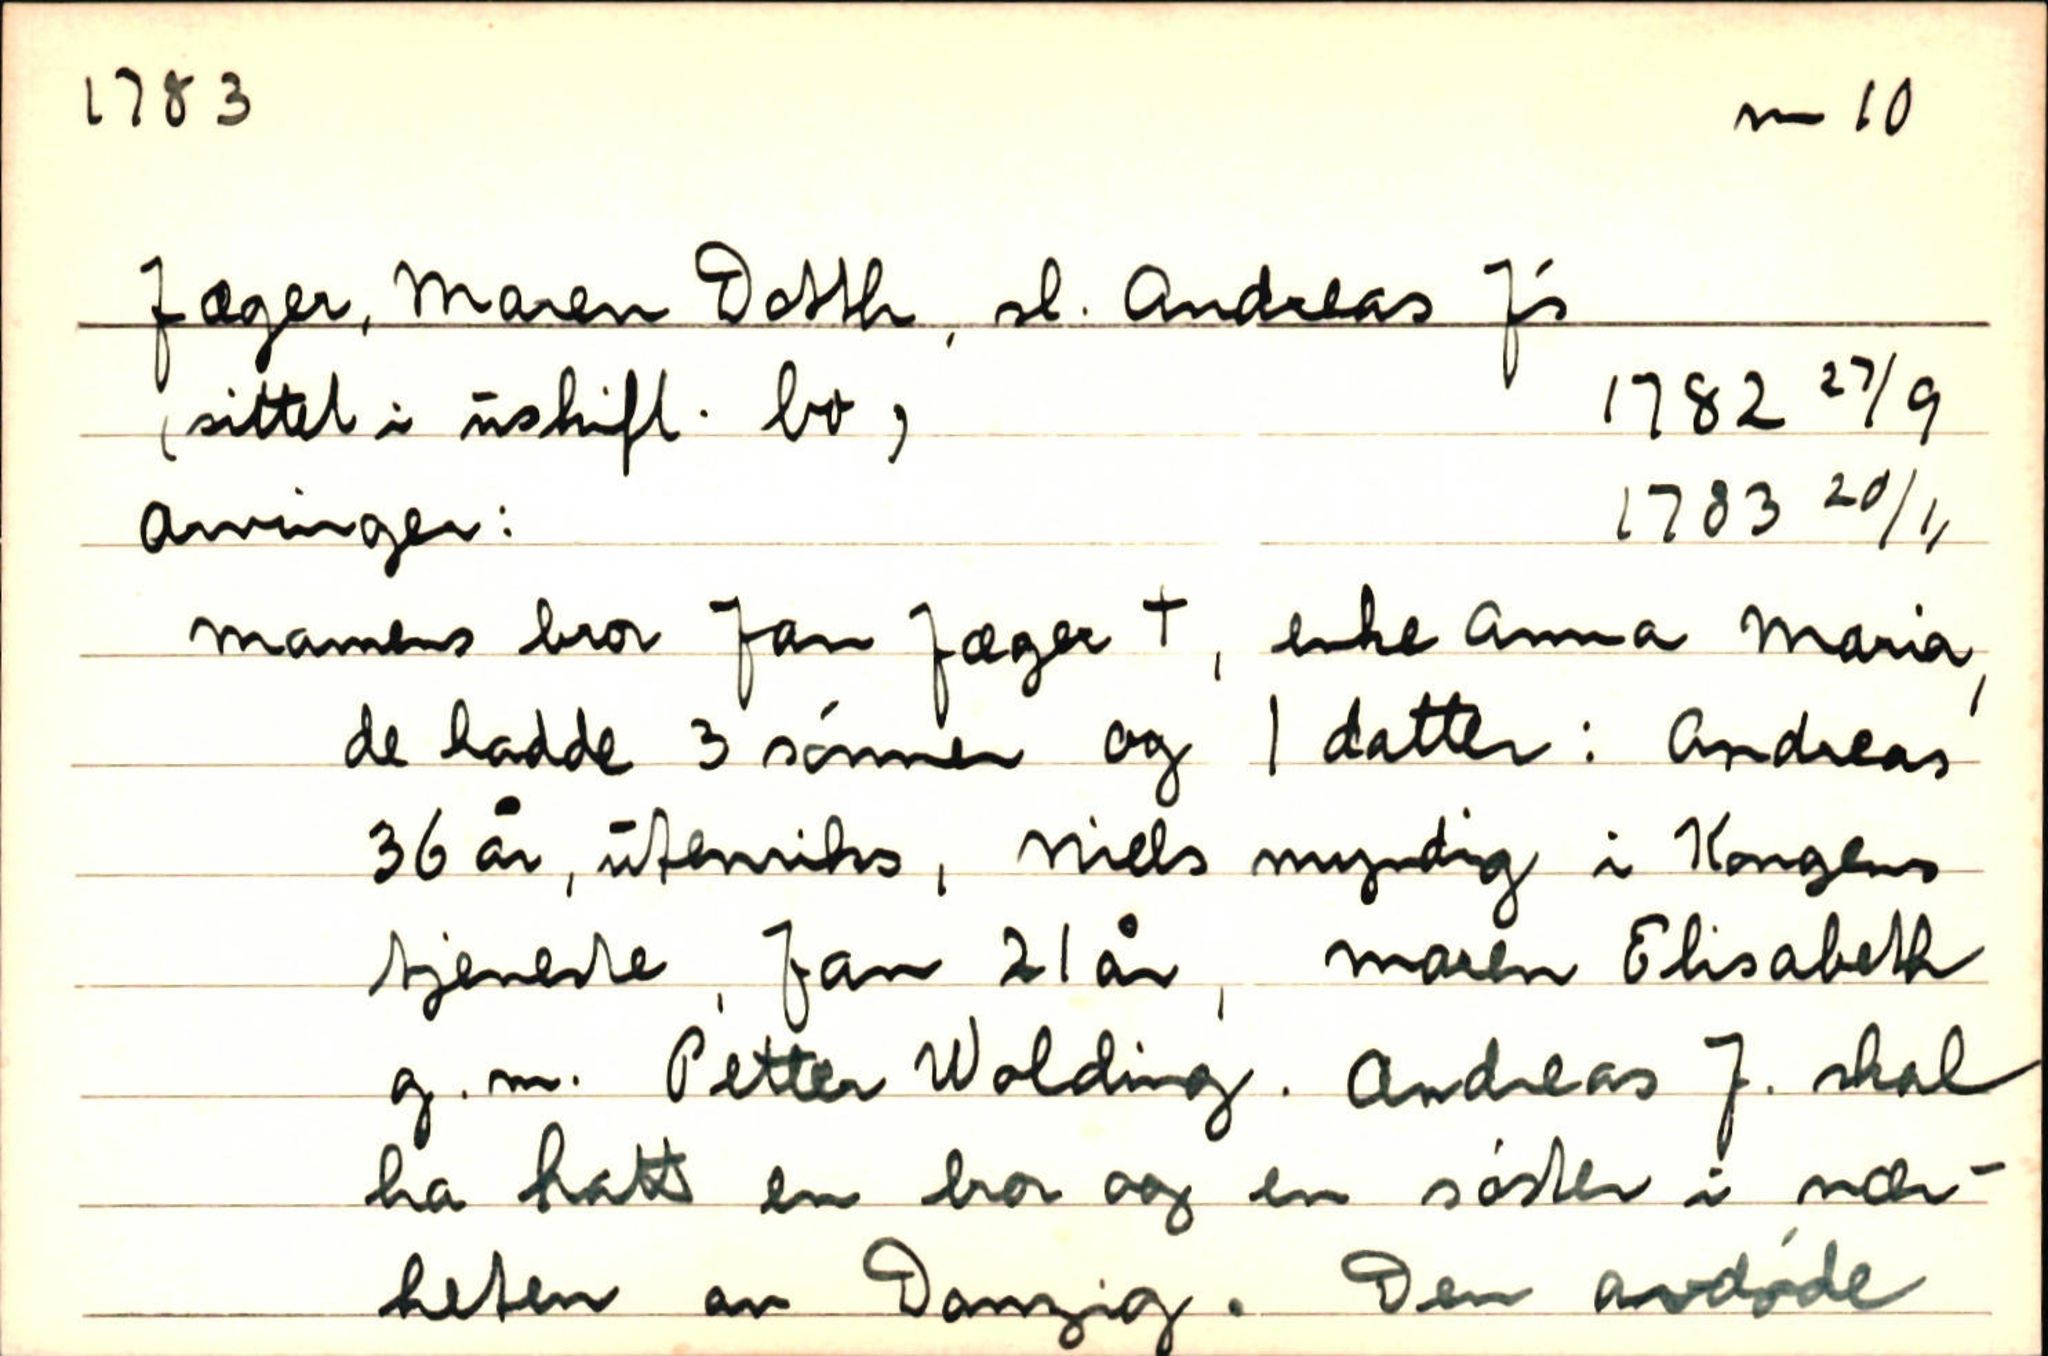 1783
m 10
Jæger, Maren Dotth, sl. Andreas J's
(sittet i uskift. bo, 1782 27/9
Arvinger: 1783 20/11
Mannens bror Jan Jæger †, enke Anna Maria,
de hadde 3 sónner og 1 datter: Andreas
36 år, utenriks, Niels myndig i Kongens
tjeneste, Jan 21 år, Maren Elisabeth
g.m. Petter Wolding. Andreas J. skal
ha hatt en bror og en sóster i nær-
heten av Danzig. Den avdóde